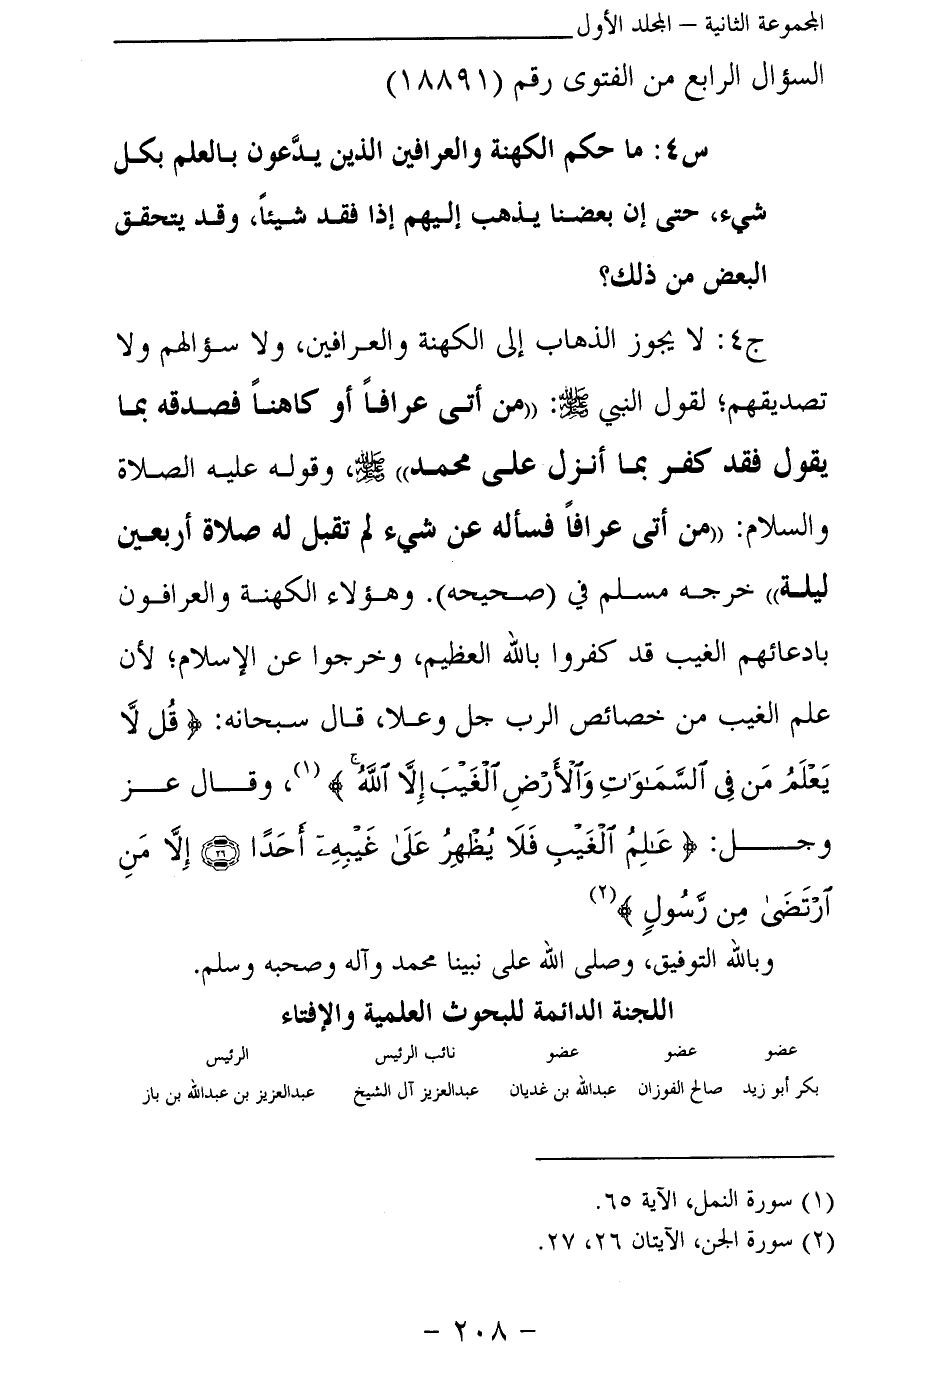 المجموعة الثانية – المجلد الأول
السؤال الرابع من الفتوى رقم (١٨٨٩١)
س٤: ما حكم الكهنة والعرافين الذين يدَّعون بالعلم بكل
شيء، حتى إن بعضنا يذهب إليهم إذا فقد شيئاً، وقد يتحقق
البعض من ذلك؟
ج٤: لا يجوز الذهاب إلى الكهنة والعرافين، ولا سؤالهم ولا
تصديقهم؛ لقول النبي ﷺ: ((من أتى عرافاً أو كاهناً فصدقه بما
يقول فقد كفر بما أنزل على محمد)) ﷺ، وقوله عليه الصلاة
والسلام: ((من أتى عرافاً فسأله عن شيء لم تقبل له صلاة أربعين
ليلة)) خرجه مسلم في (صحيحه). وهؤلاء الكهنة والعرافون
بادعائهم الغيب قد كفروا بالله العظيم، وخرجوا عن الإسلام؛ لأن
علم الغيب من خصائص الرب جل وعلا، قال سبحانه: ﴿ قُل لَّا
يَعْلَمُ مَن فِى ٱلسَّمَٰوَٰتِ وَٱلْأَرْضِ ٱلْغَيْبَ إِلَّا ٱللَّهُ ۚ ﴾ (١)، وقال عز
وجل: ﴿ عَٰلِمُ ٱلْغَيْبِ فَلَا يُظْهِرُ عَلَىٰ غَيْبِهِۦٓ أَحَدًا ۝٢٦ إِلَّا مَنِ
ٱرْتَضَىٰ مِن رَّسُولٍ ﴾(٢)
وبالله التوفيق، وصلى الله على نبينا محمد وآله وصحبه وسلم.
اللجنة الدائمة للبحوث العلمية والإفتاء
عضو عضو عضو نائب الرئيس الرئيس
بكر أبو زيد صالح الفوزان عبدالله بن غديان عبدالعزيز آل الشيخ عبدالعزيز بن عبدالله بن باز
(١) سورة النمل، الآية ٦٥.
(٢) سورة الجن، الآيتان ٢٦، ٢٧.
– ٢٠٨ –